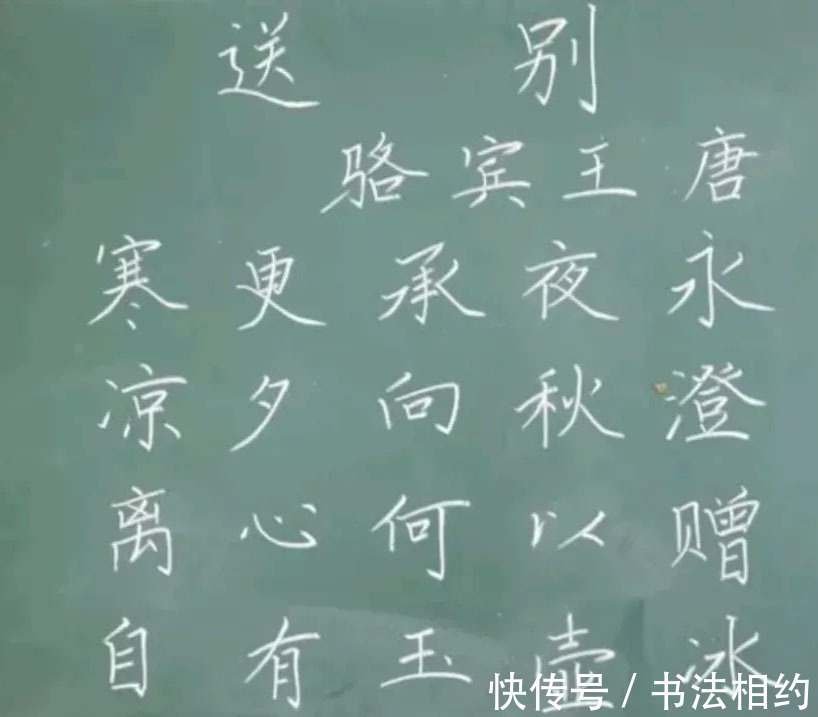 送别
骆宾王 唐
寒更承夜永
凉夕向秋澄
离心何以赠
自有玉壶冰
快传号 / 书法相约